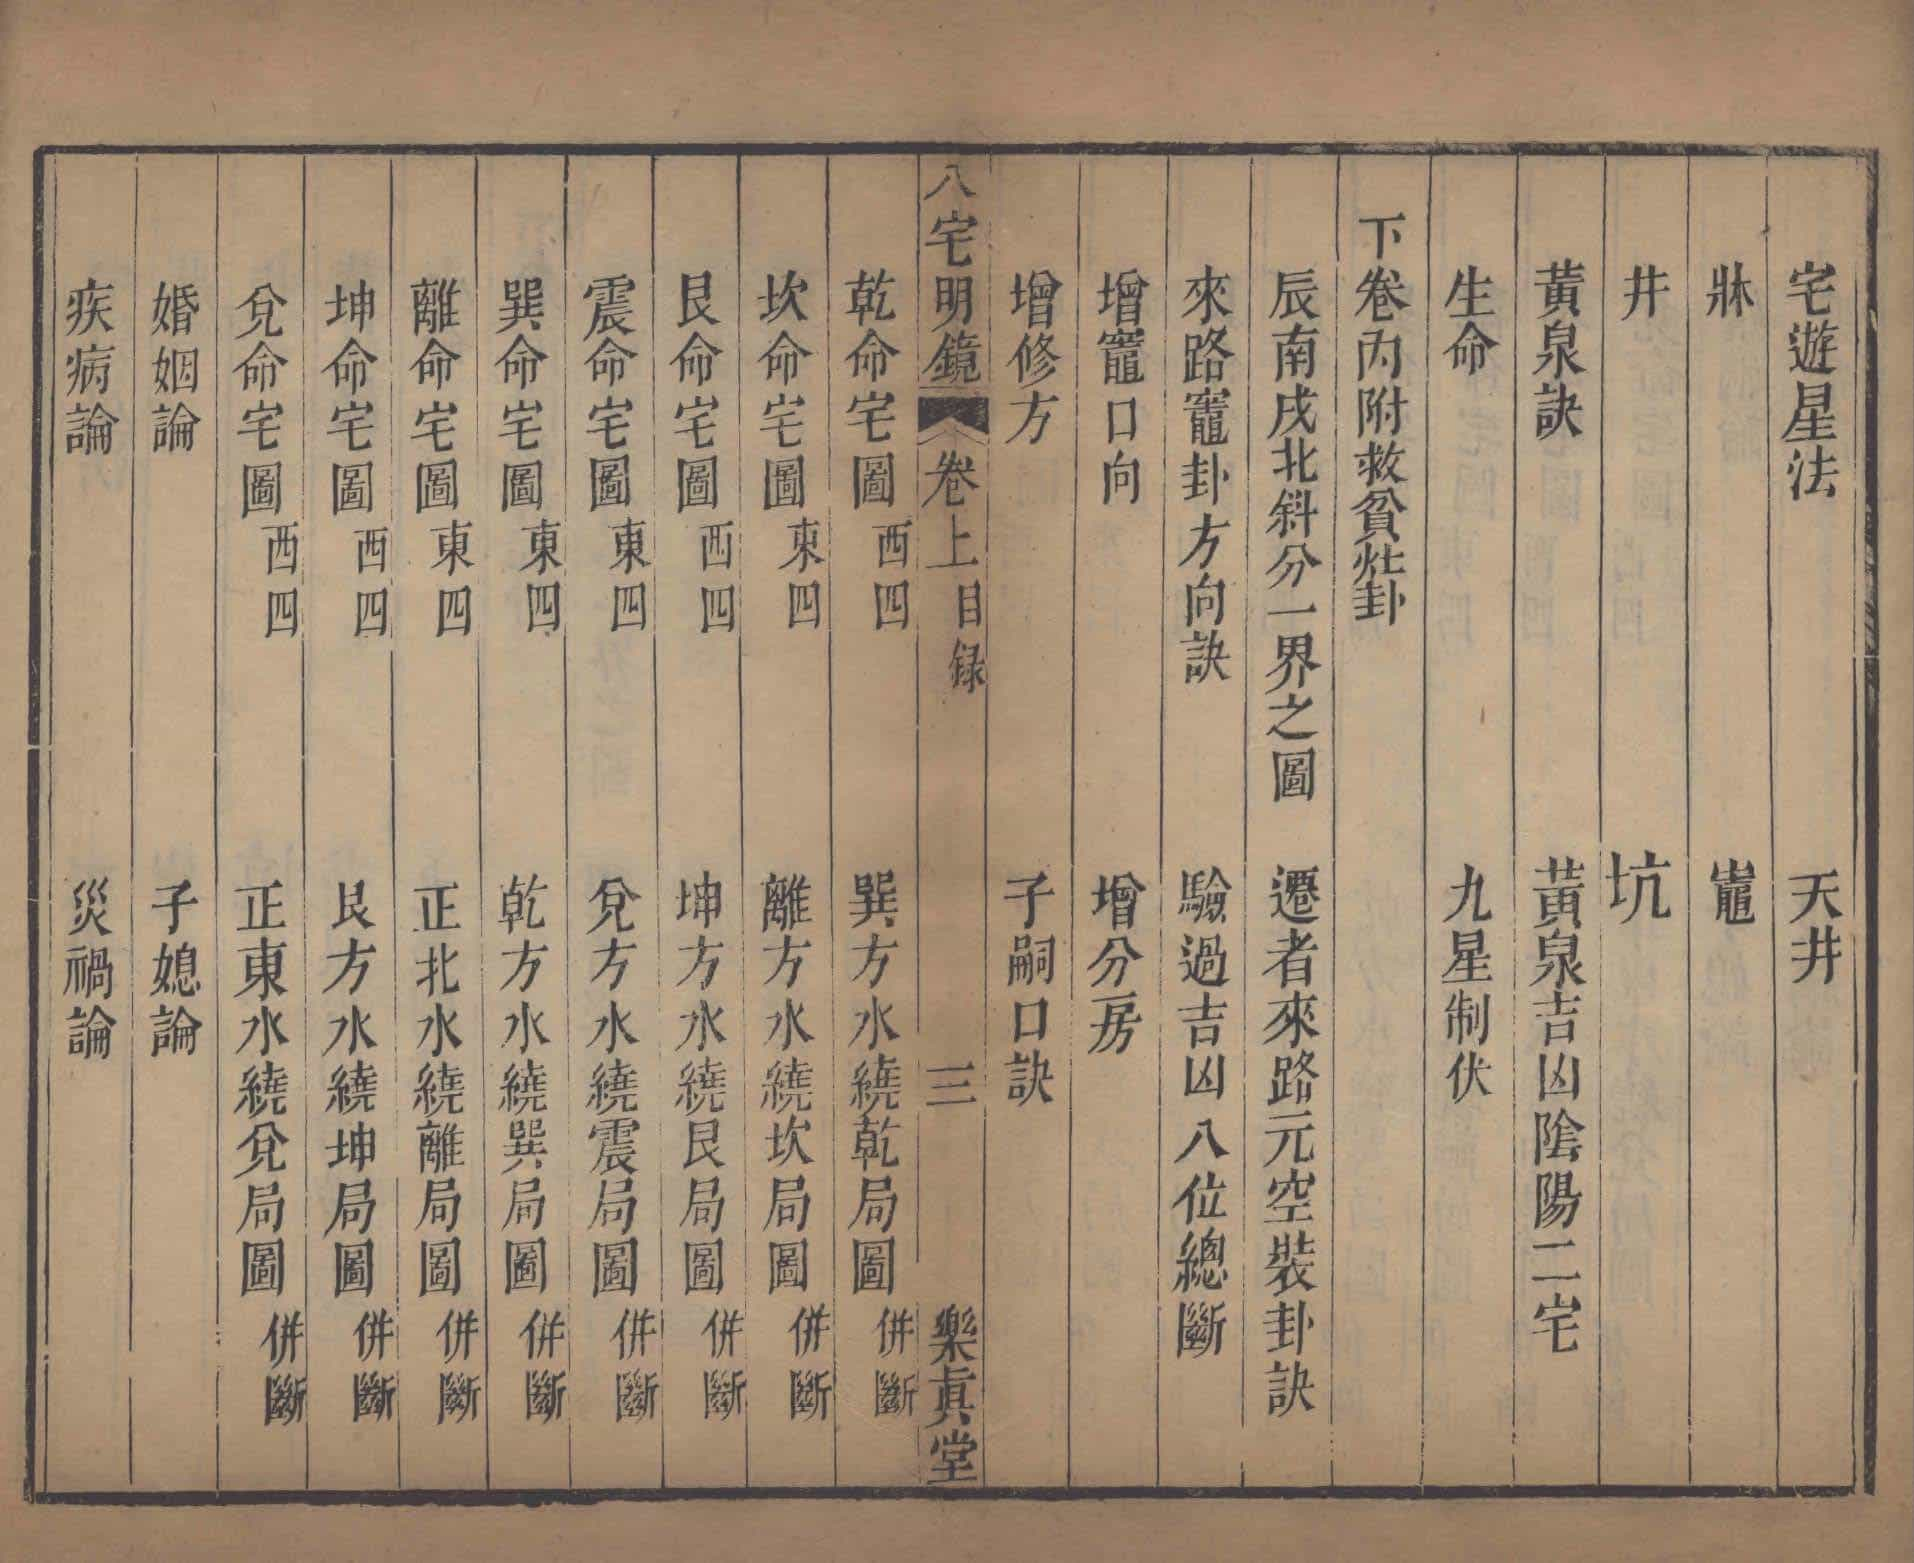 宅遊星法　天井
牀　竈
井　坑
黃泉訣　黃泉吉凶陰陽二宅
生命　九星制伏
下卷內附救貧灶卦
辰南戌北斜分一界之圖　遷者來路元空裝卦訣
來路竈卦方向訣　驗過吉凶八位總斷
增竈口向　增分房
增修方　子嗣口訣
八宅明鏡　卷上目录　三　樂真堂
乾命宅圖西四　巽方水繞乾局圖併斷
坎命宅圖東四　離方水繞坎局圖併斷
艮命宅圖西四　坤方水繞艮局圖併斷
震命宅圖東四　兌方水繞震局圖併斷
巽命宅圖東四　乾方水繞巽局圖併斷
離命宅圖東四　正北水繞離局圖併斷
坤命宅圖西四　艮方水繞坤局圖併斷
兌命宅圖西四　正東水繞兌局圖併斷
婚姻論　子媳論
疾病論　災禍論